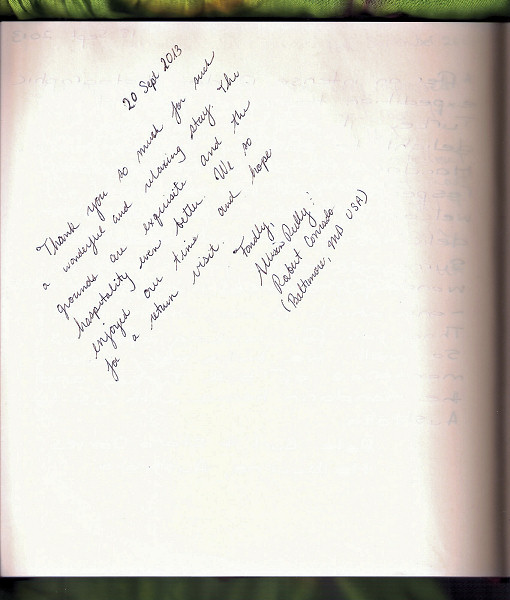 20 Sept 2013
Thank you so much for such
a wonderful and relaxing stay. The
grounds are exquisite and the
hospitality even better. We so
enjoyed our time and hope
for a return visit.
Fondly,
Allison Reilly &
Robert Conrado
(Baltimore, MD USA)